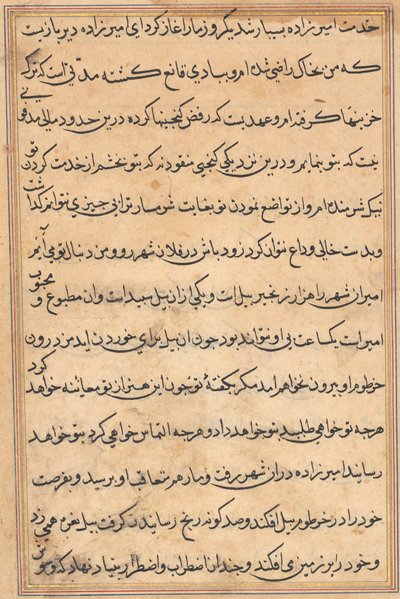 خدمت امیر زاده بسیار شد یکروز مار اغاز کرد ای امیر زاده دیر باز یست
که من بخاک راضی شده ام و ببادی قانع کشته مدتی است که ترک
خزینها کرفته ام و عهدیست که رفض کنجینها کرده درین حدود مالی مدفون
نیست که بتو بنمایم و درین نزدیکی کنجی منقود نه که بتو بخشم از خدمت کردن تو
نیک شرمنده ام و از تواضع نمودن تو بغایت شرمسار ترا بی چیزی نتوانم کذاشت
و بدست خالی وداع نتوان کرد زود باش در فلان شهر رو و من دنبال تو می آیم
امیر ان شهر را هزار زنجیر پیل است و یکی از ان پیل سپید است وان مطبوع و محبوب
امیر است یکساعت بی او نتواند بود چون ان پیل برای خوردن اید من درون
خرطوم او بیرون نخواهم امد مکر بکفتهٔ تو چون این هنر از تو معاینه خواهد کرد
هرچه تو خواهی طلبید بتو خواهد داد و هرچه التماس خواهی کرد بتو خواهد
رسانید امیر زاده در ان شهر رفت و مار هم متعاقب او برسید و بفرصت
خود را در خرطوم پیل افکند و صد کونه رنج رسانیدن کرفت پیل نعره همی زد
و خود را بر زمین می افکند و چندان اضطراب و اضطرار بنیاد نهاد که